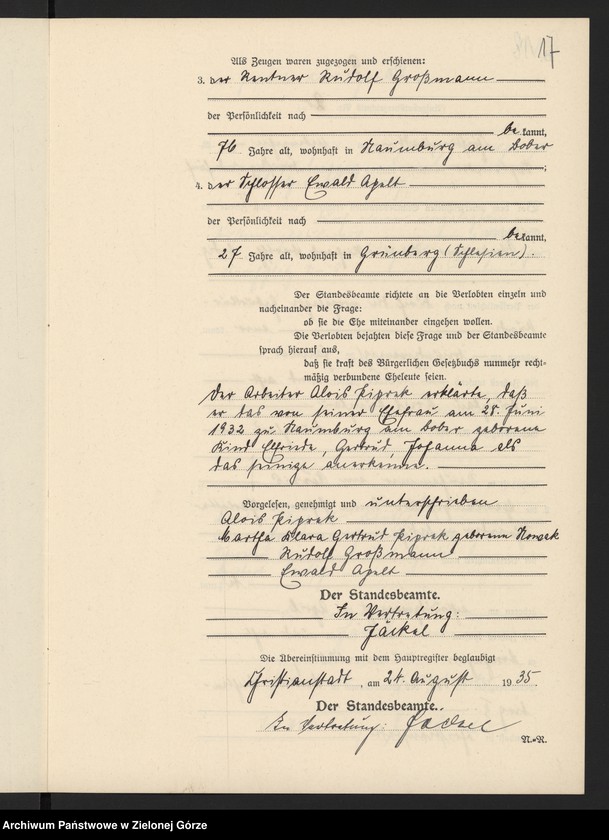 17
Als Zeugen waren zugezogen und erschienen:
3. der Rentner Rudolf Großmann
der Persönlichkeit nach
be kannt,
76 Jahre alt, wohnhaft in Naumburg am Bober
;
4. der Schlosser Ewald Apelt
der Persönlichkeit nach
be kannt,
27 Jahre alt, wohnhaft in Grünberg (Schlesien).
Der Standesbeamte richtete an die Verlobten einzeln und
nacheinander die Frage:
ob sie die Ehe miteinander eingehen wollen.
Die Verlobten bejahten diese Frage und der Standesbeamte
sprach hierauf aus,
daß sie kraft des Bürgerlichen Gesetzbuchs nunmehr recht-
mäßig verbundene Eheleute seien.
Der Arbeiter Alois Piprek erklärte, daß
er das von seiner Ehefrau am 28. Juni
1932 zu Naumburg am Bober geborene
Kind Elfriede, Gertrud, Johanna als
das seinige anerkenne.
Vorgelesen, genehmigt und unterschrieben
Alois Piprek
Martha Klara Gertrud Piprek geborene Nowak
Rudolf Großmann
Ewald Apelt
Der Standesbeamte.
In Vertretung:
Jäckel
Die Übereinstimmung mit dem Hauptregister beglaubigt
Christianstadt, am 24. August 1935.
Der Standesbeamte.
In Vertretung: Jäckel
N.=R.
Archiwum Państwowe w Zielonej Górze